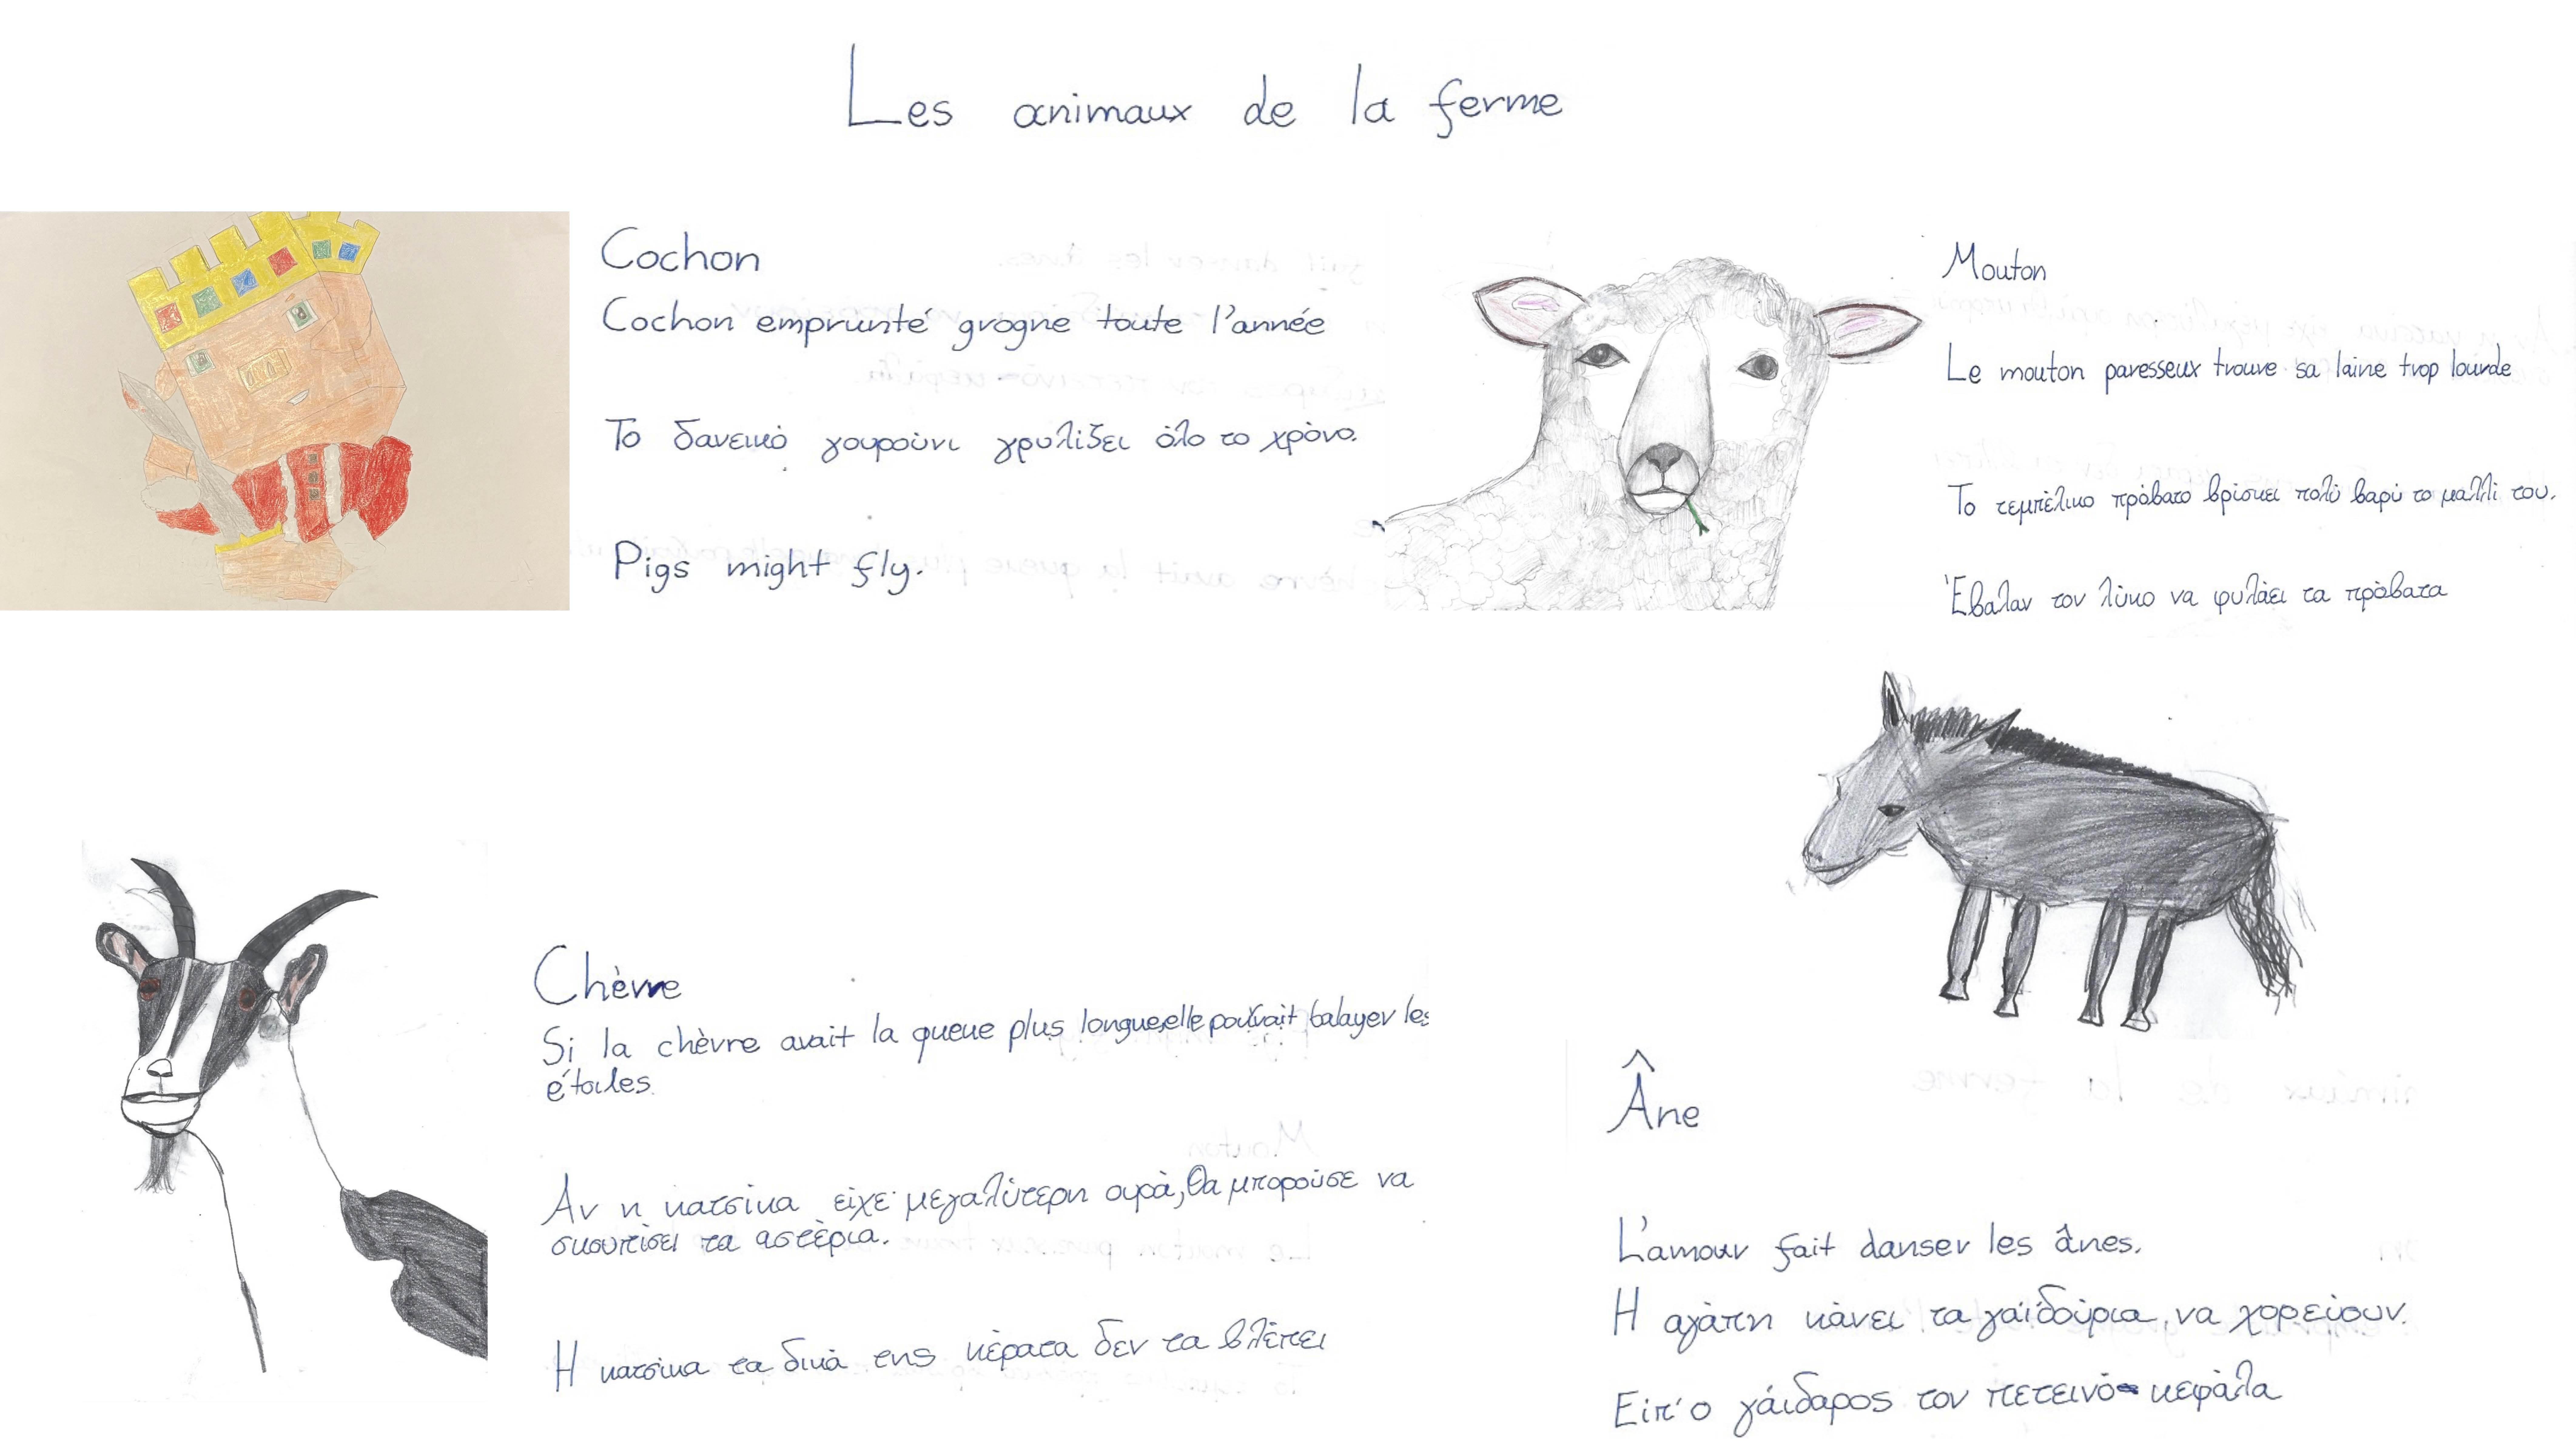 Les animaux de la ferme
Cochon
Cochon emprunté grogne toute l'année
Το δανεικό γουρούνι γρυλίζει όλο το χρόνο.
Pigs might fly.
Mouton
Le mouton paresseux trouve sa laine trop lourde
Το τεμπέλικο πρόβατο βρίσκει πολύ βαρύ το μαλλί του.
Έβαλαν τον λύκο να φυλάει τα πρόβατα
Chèvre
Si la chèvre avait la queue plus longue,elle pourrait balayer les
étoiles.
Αν η κατσίκα είχε μεγαλύτερη ουρά,θα μπορούσε να
σκουπίσει τα αστέρια.
Η κατσίκα τα δικά της κέρατα δεν τα βλέπει
Âne
L'amour fait danser les ânes.
Η αγάπη κάνει τα γαϊδούρια να χορεύουν.
Είπ' ο γάιδαρος τον πετεινό κεφάλα